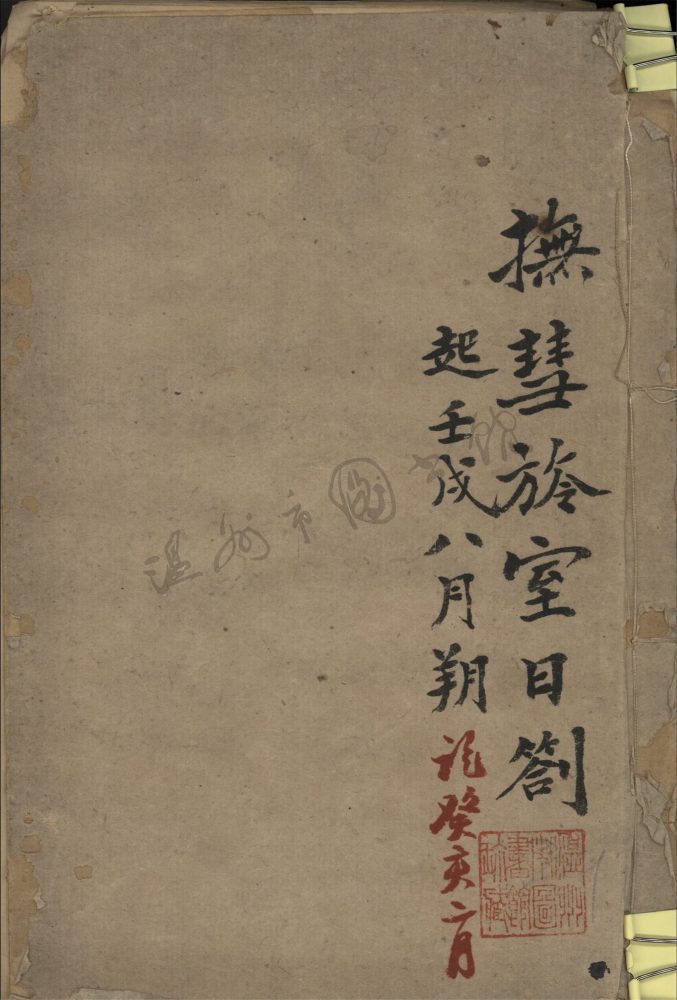 撫彗旍室日劄
起壬戌八月朔 訖癸亥二月
温州市图书馆
溫州
市圖
書館
藏